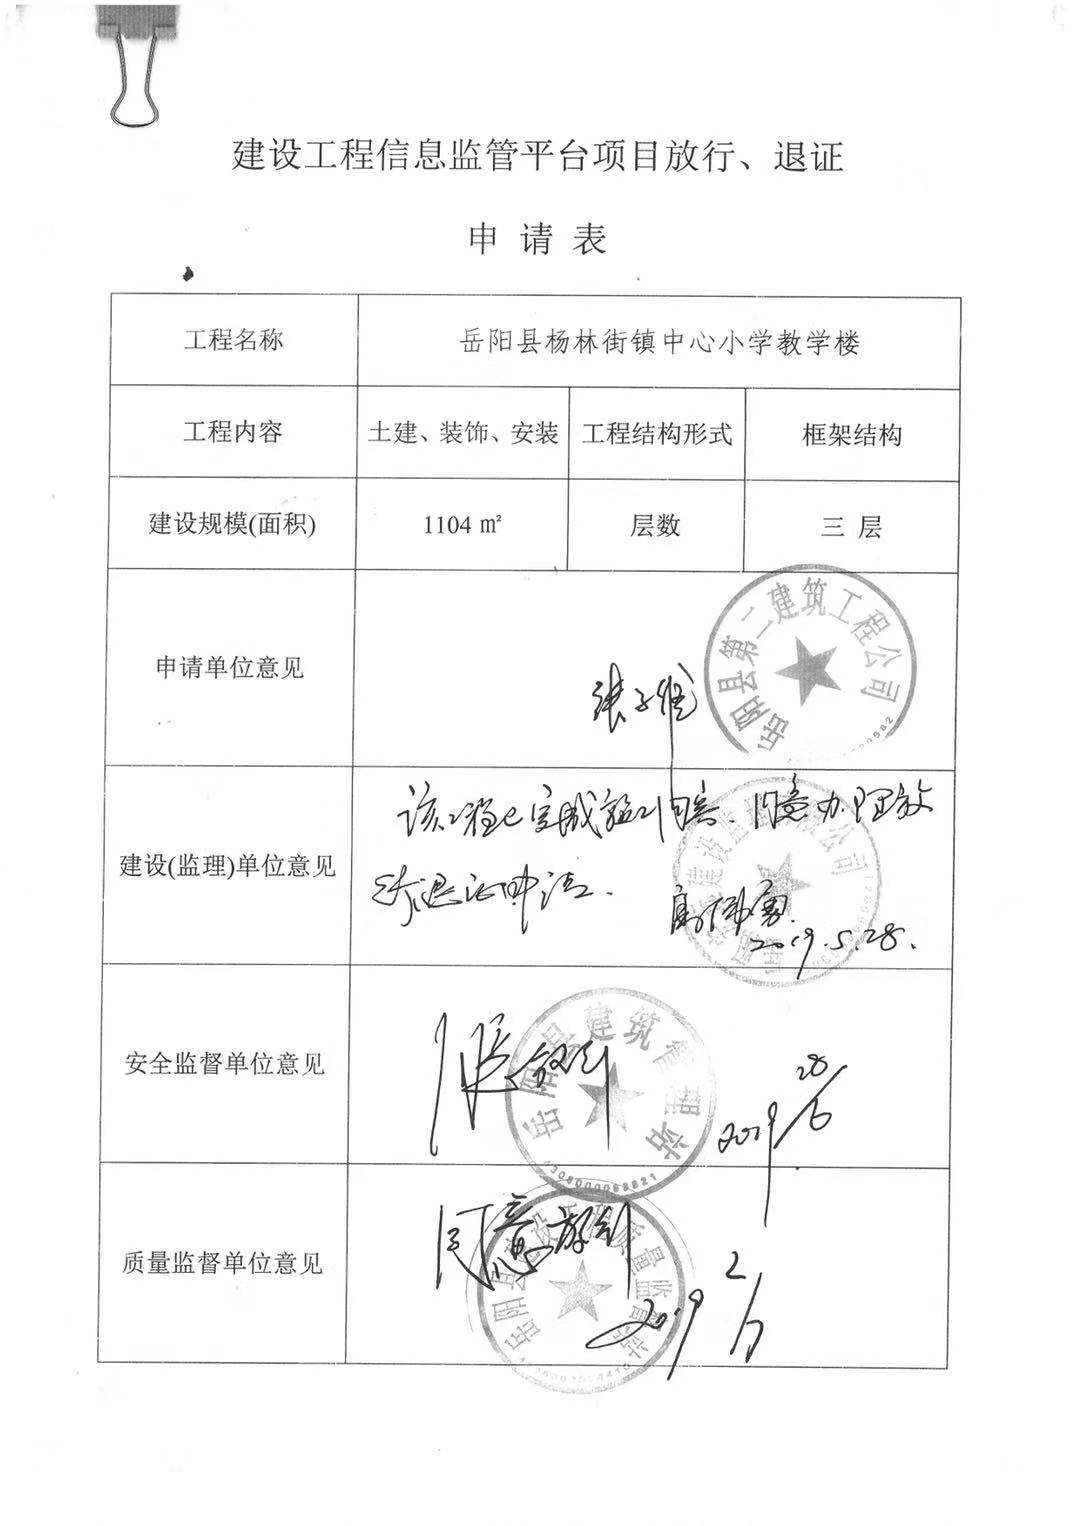 建设工程信息监管平台项目放行、退证
申 请 表
工程名称 岳阳县杨林街镇中心小学教学楼
工程内容 土建、装饰、安装 工程结构形式 框架结构
建设规模(面积) 1104 ㎡ 层数 三 层
岳阳县第二建筑工程公司
申请单位意见
该工程已完成 同意办理放
建设(监理)单位意见
行退证申请.
2019.5.28.
岳阳县建筑管理站
安全监督单位意见
2019 28/6
4306000062821
同意放行
岳阳县建设工程质量监督站
质量监督单位意见
2019 2/7